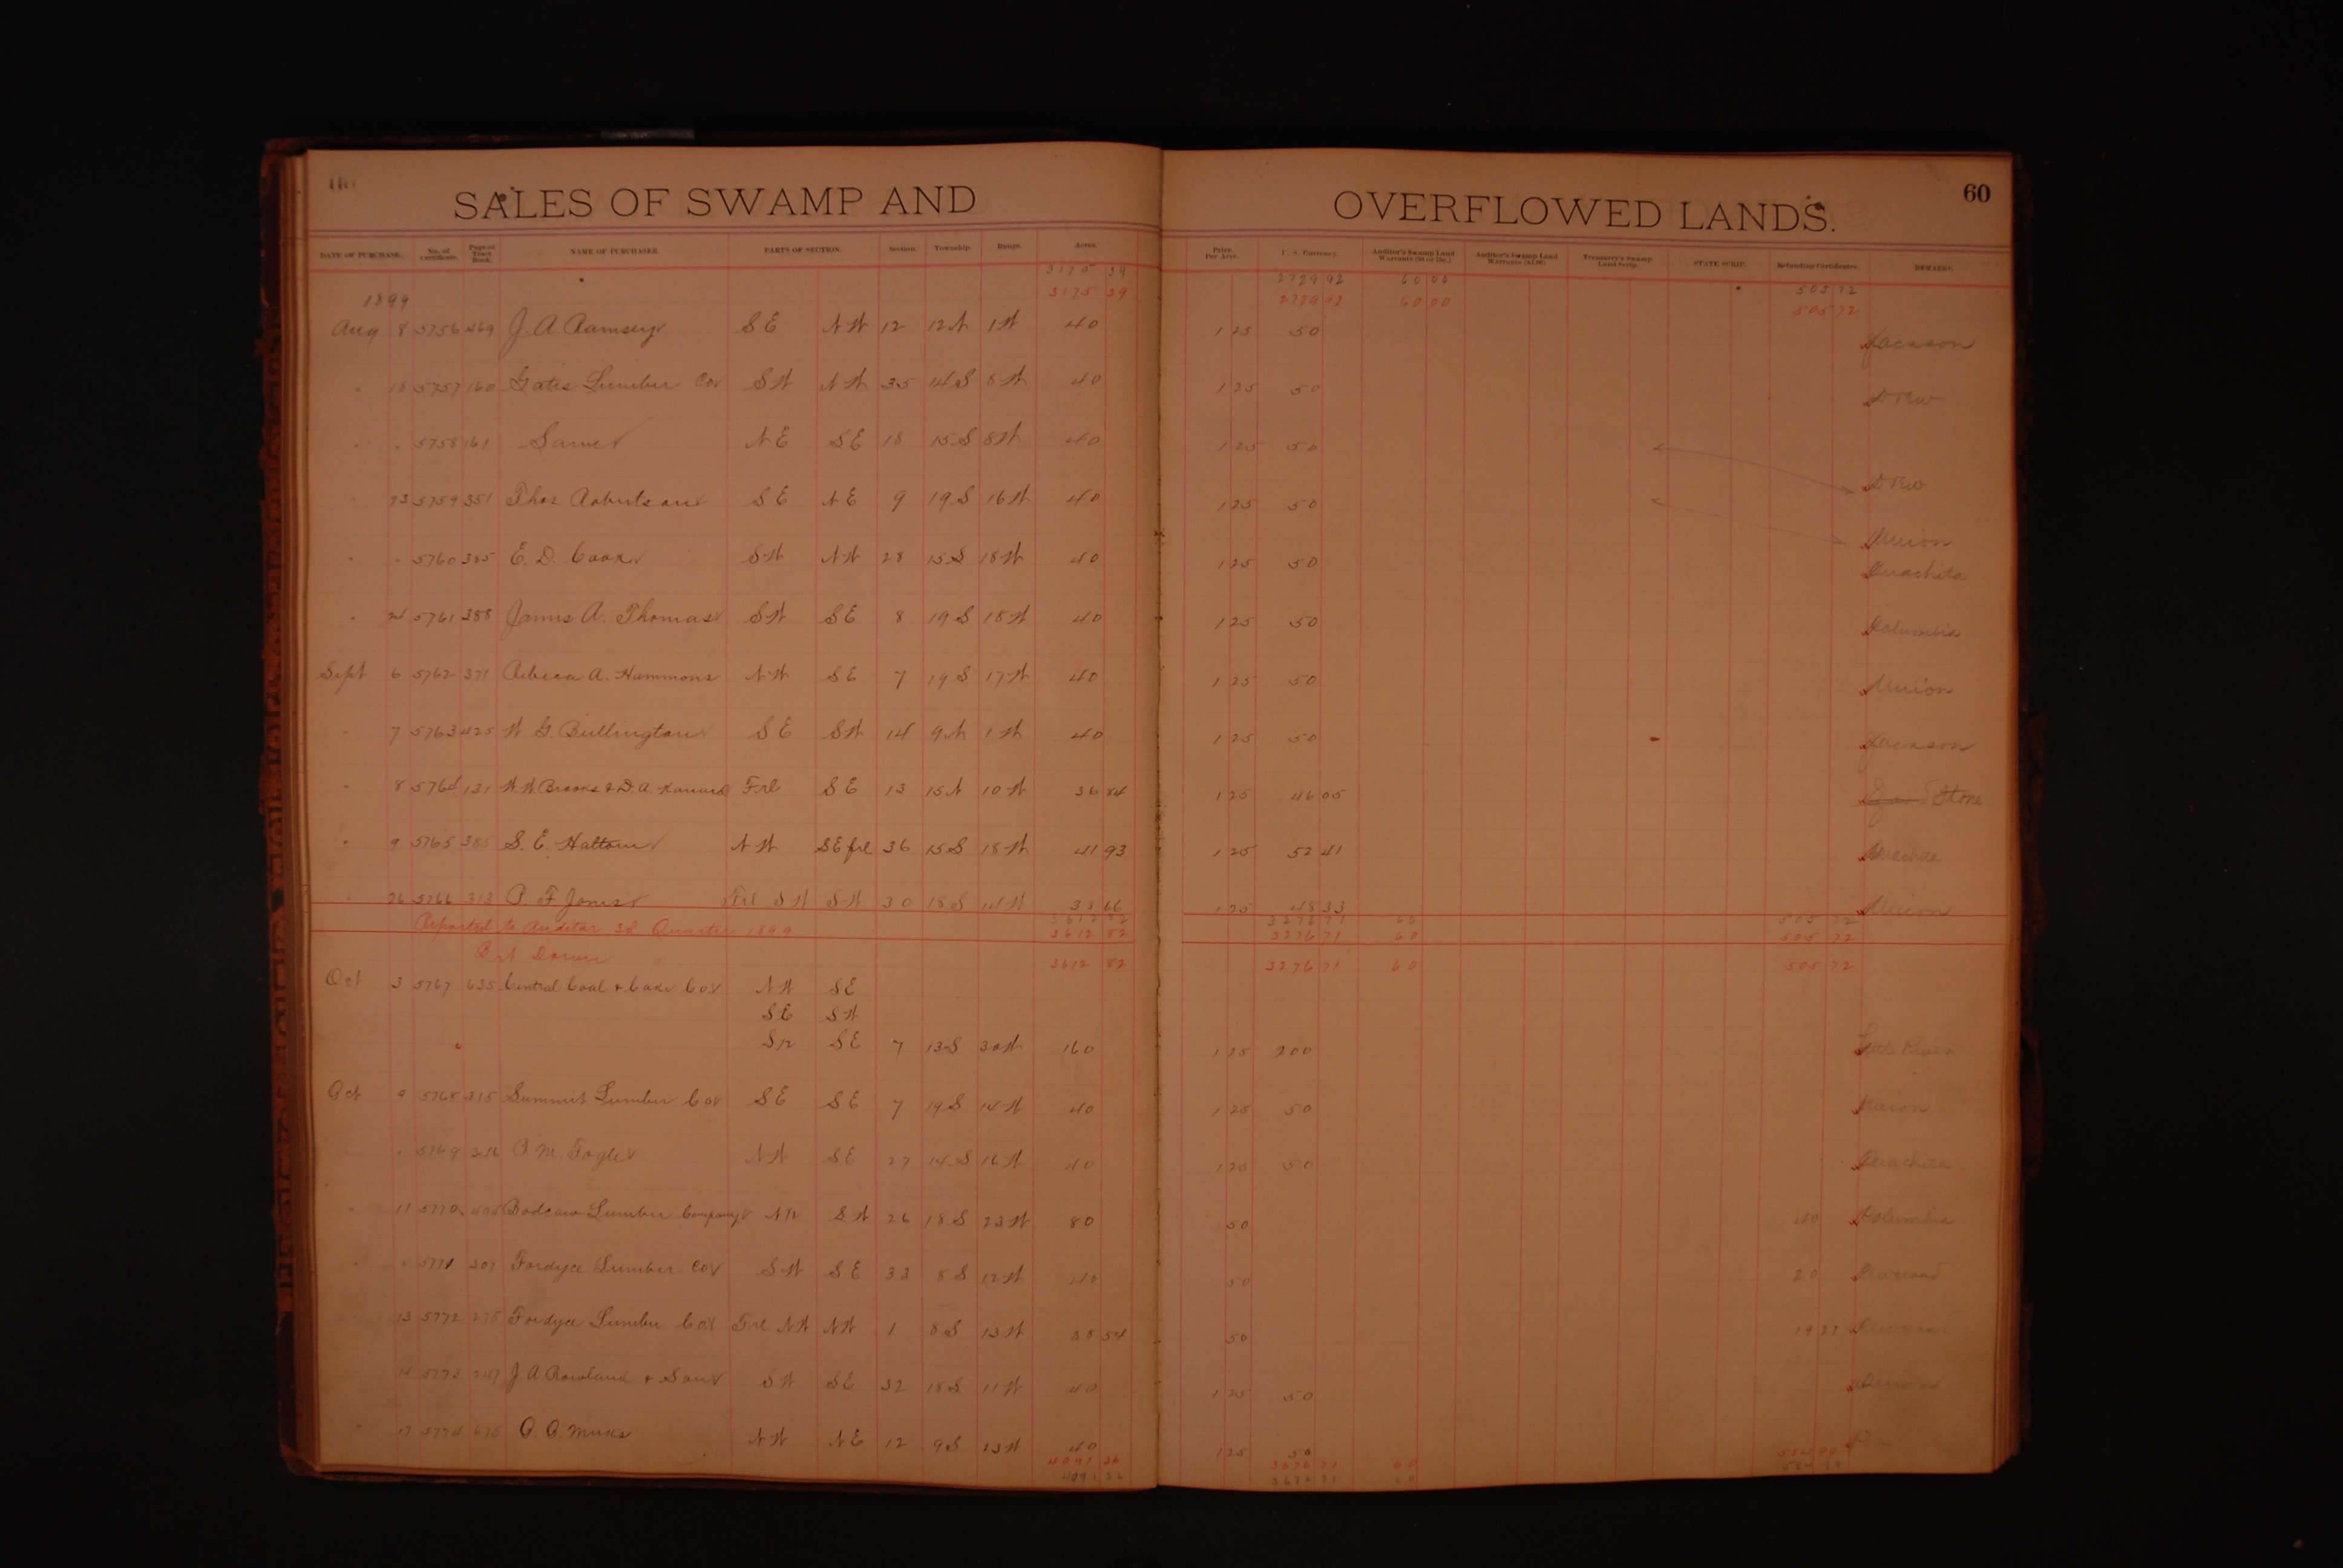 SALES OF SWAMP AND OVERFLOWED LANDS. 60
DATE OF PURCHASE. No. of Certificate. Page of Tract Book. NAME OF PURCHASER. PARTS OF SECTION. Section. Township. Range. Acres. Price Per Acre. U. S. Currency. Auditor's Swamp Land Warrants (50 or 75c.) Auditor's Swamp Land Warrants ($1.00) Treasurer's Swamp Land Scrip. STATE SCRIP. Refunding Certificates. REMARKS.
3175 39 2729 92 60 00 505 72
1899 3175 39 2729 92 60 00 505 72
Aug 8 5756 469 J. A Ramsey SE NW 12 12N 1W 40 1 25 50 Jackson
" 18 5757 160 Gates Lumber Co SW NW 35 14S 8W 40 1 25 50 Drew
" " 5758 161 Same NE SE 18 15S 8W 40 1 25 50 Drew
" 23 5759 351 Thos Robertson SE NE 9 19S 16W 40 1 25 50 Union
" " 5760 385 E. D. Cook SW NW 28 15S 18W 40 1 25 50 Ouachita
" 24 5761 388 James A. Thomas SW SE 8 19S 18W 40 1 25 50 Columbia
Sept 6 5762 371 Rebeca A. Hammons NW SE 7 19S 17W 40 1 25 50 Union
" 7 5763 425 W G. Bullington SE SW 14 9N 1W 40 1 25 50 Jackson
" 8 5764 131 W. W. Brooks & D A. Frl SE 13 15N 10W 36 84 1 25 46 05 Izard Stone
" 9 5765 385 S. E. Hattom NW SE frl 36 15S 18W 41 93 1 25 52 41 Ouachita
" 26 5766 313 P F Jones Frl SW SW 30 18S 14W 38 66 1 25 48 33 Union
3612 82 3276 71 60 505 72
Reported to Auditor 3d Quarter 1899 3612 82 3276 71 60 505 72
Brt Down 3612 82 3276 71 60 505 72
Oct 3 5767 635 Central Coal & Coke Co NW SE
SE SW
S½ SE 7 13S 30W 160 1 25 200 Little River
Oct 9 5768 315 Summit Lumber Co SE SE 7 19S 14W 40 1 25 50 Union
" " 5769 P. M. Fogle NW SE 27 14S 16W 40 1 25 50 Ouachita
" 11 5770 Bodcaw Lumber Company N½ SW 26 18S 23W 80 50 40 Columbia
" " 5771 207 Fordyce Lumber Co SW SE 33 8S 12W 40 50 20 Cleveland
13 5772 275 Fordyce Lumber Co Frl NW NW 1 8S 13W 38 54 50 19 27 Cleveland
" 14 5773 247 J. A Rowland & Son SW SE 32 18S 11W 40 1 25 50 Union
" 17 5774 675 NW NE 12 9S 23W 40 1 25 50
4091 36 3676 71 60 584 99
4091 36 3676 71 60 584 99